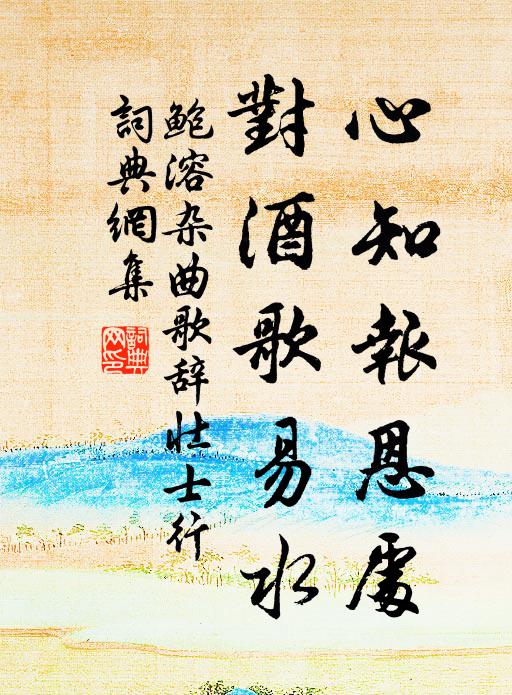 心知報恩處
對酒歌易水
鲍溶杂曲歌辞壮士行
詞典網集
詞典網印